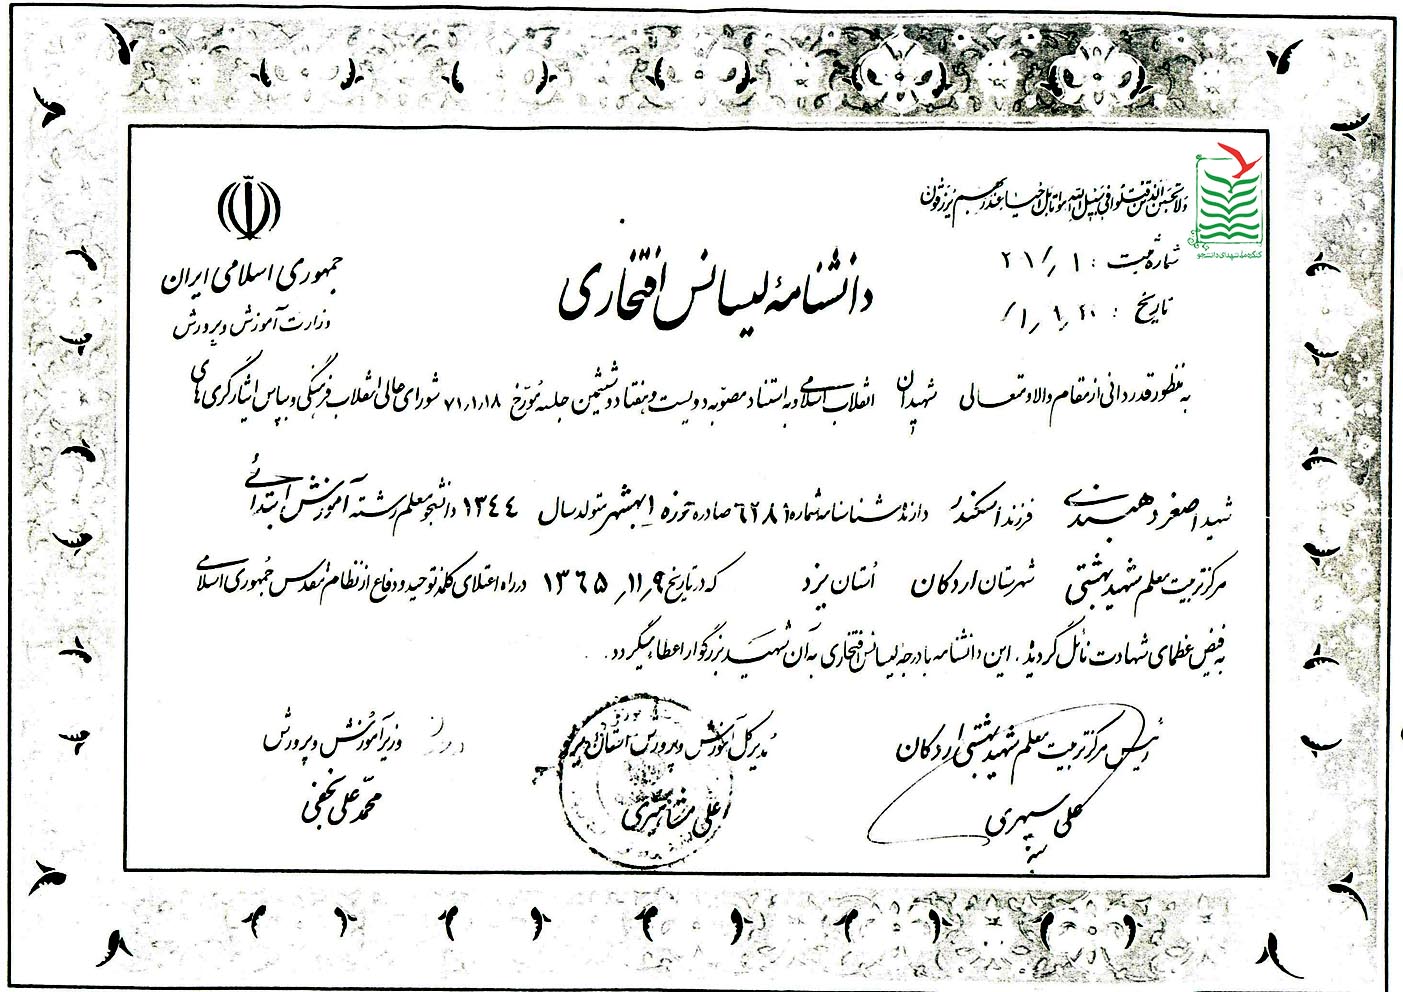 ولا تحسبن الذین قتلوا فی سبیل الله امواتا بل احیاء عند ربهم یرزقون
کنگره ملی شهدای دانشجو
جمهوری اسلامی ایران
وزارت آموزش و پرورش
شماره ثبت :
تاریخ :
دانشنامهٔ لیسانس افتخاری
به منظور قدردانی از مقام والا و متعالی شهیدان انقلاب اسلامی و به استناد مصوبه دویست و هفتاد و ششمین جلسه مورخ ۷۱٫۱٫۱۸ شورای عالی انقلاب فرهنگی و بپاس ایثارگری های
شهید اصغر دهبندی فرزند اسکندر دارنده شناسنامه شماره ۶۲۸۱ صادره حوزه ۱ بهشهر متولد سال ۱۳۴۴ دانشجو معلم رشته آموزش ابتدائی
مرکز تربیت معلم شهید بهشتی شهرستان اردکان استان یزد که در تاریخ ۹٫۱۱٫۱۳۶۵ در راه اعتلای کلمه توحید و دفاع از نظام مقدس جمهوری اسلامی
به فیض عظمای شهادت نائل گردید، این دانشنامه با درجه لیسانس افتخاری به آن شهید بزرگوار اعطاء میگردد.
رئیس مرکز تربیت معلم شهید بهشتی اردکان
علی سپهری
مدیرکل آموزش و پرورش استان یزد
علی
وزیر آموزش و پرورش
محمد علی نجفی